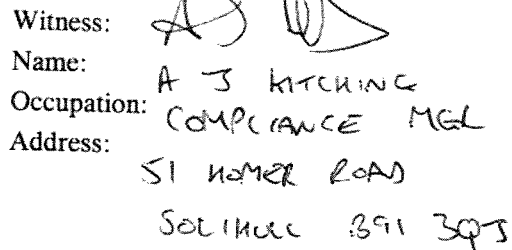 Witness:
Name: A J KITCHING
Occupation: COMPLIANCE MGR
Address: 51 HOMER ROAD
SOLIHULL B91 3QJ